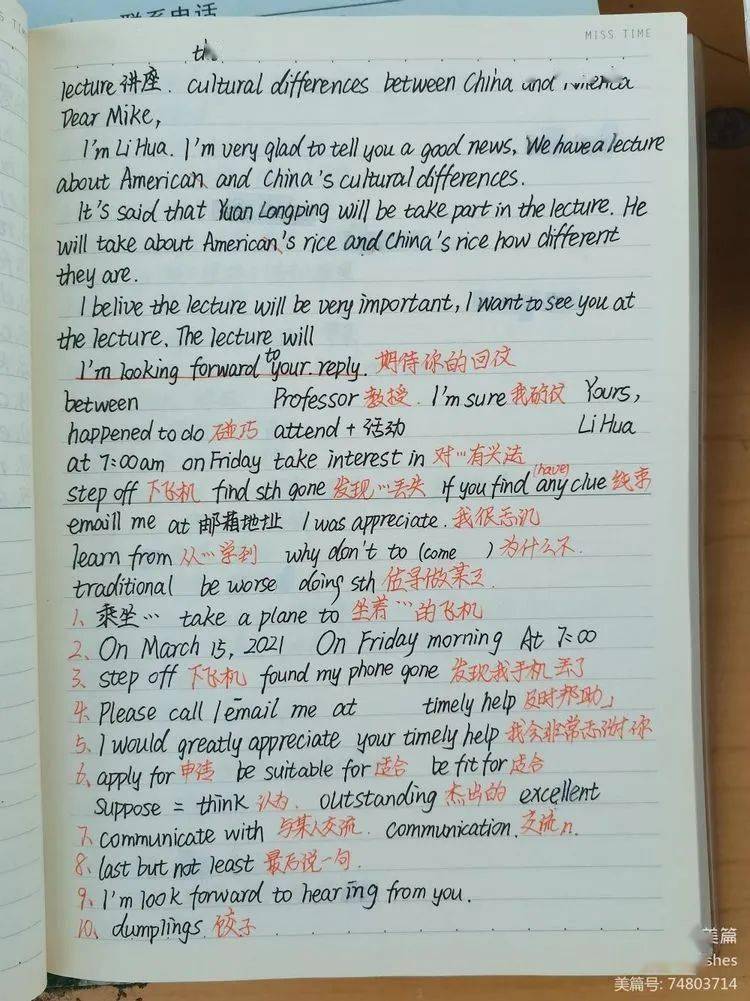 联系电话
MISS TIME
th
lecture 讲座. cultural differences between China and America
Dear Mike,
I'm Li Hua. I'm very glad to tell you a good news, We have a lecture
about American and China's cultural differences.
It's said that Yuan Longping will be take part in the lecture. He
will take about American's rice and China's rice how different
they are.
I belive the lecture will be very important, I want to see you at
the lecture. The lecture will
I'm looking forward to your reply. 期待你的回仪
between Professor 教授. I'm sure 我确仪 Yours,
happened to do 碰巧 attend + 活动 Li Hua
at 7:00am on Friday take interest in 对…有兴法
step off 下飞机 find sth gone 发现…丢失 if you find (have) any clue 线索
emaill me at 邮箱地址 I was appreciate. 我很感沉
learn from 从…学到 why don't to (come ) 为什么不
traditional be worse doing sth 值得做某事.
1、乘坐… take a plane to 坐着…的飞机
2、On March 15, 2021 On Friday morning At 7:00
3、step off 下飞机 found my phone gone 发现我手机丢了
4、Please call / email me at timely help 及时帮助」
5、I would greatly appreciate your timely help 我会非常感谢你
6、apply for 申请 be suitable for 适合 be fit for 适合
Suppose = think 认为. outstanding 杰出的 excellent
7、communicate with 与某人交流. communication. 交流 n.
8、last but not least 最后说一句.
9、I'm look forward to hearing from you.
10、dumplings. 饺子
美篇
shes
美篇号: 74803714